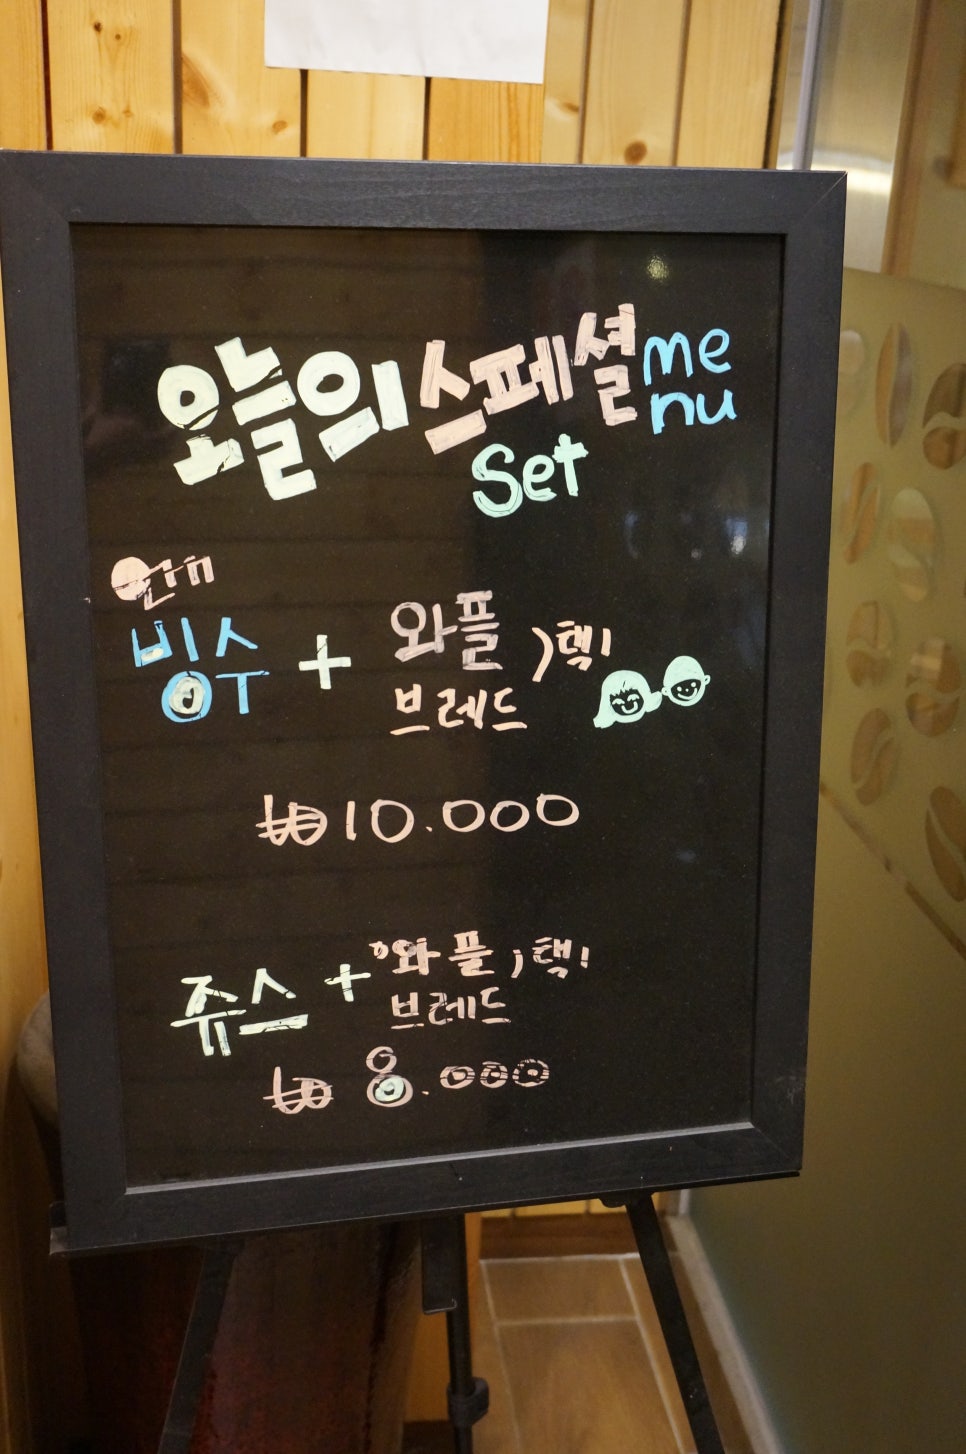 오늘의 스페셜 menu
Set
빙수 + 와플
브레드 ) 택1
₩10.000
쥬스 + 와플
브레드 ) 택1
₩8.000